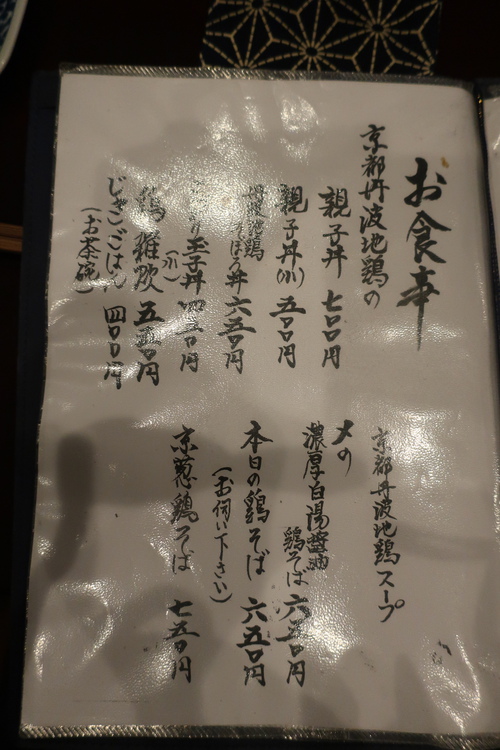 お食事
京都丹波地鶏の
親子丼 七〇〇円
親子丼(小) 五〇〇円
丹波地鶏
そぼろ丼 六五〇円
玉子丼
(小)
鶏雑炊 五五〇円
じゃこごはん 四〇〇円
(お茶碗)
京都丹波地鶏スープ
〆の
濃厚白湯醤油
鶏そば 六五〇円
本日の鶏そば 六五〇円
(お伺い下さい)
京葱鶏そば 七五〇円